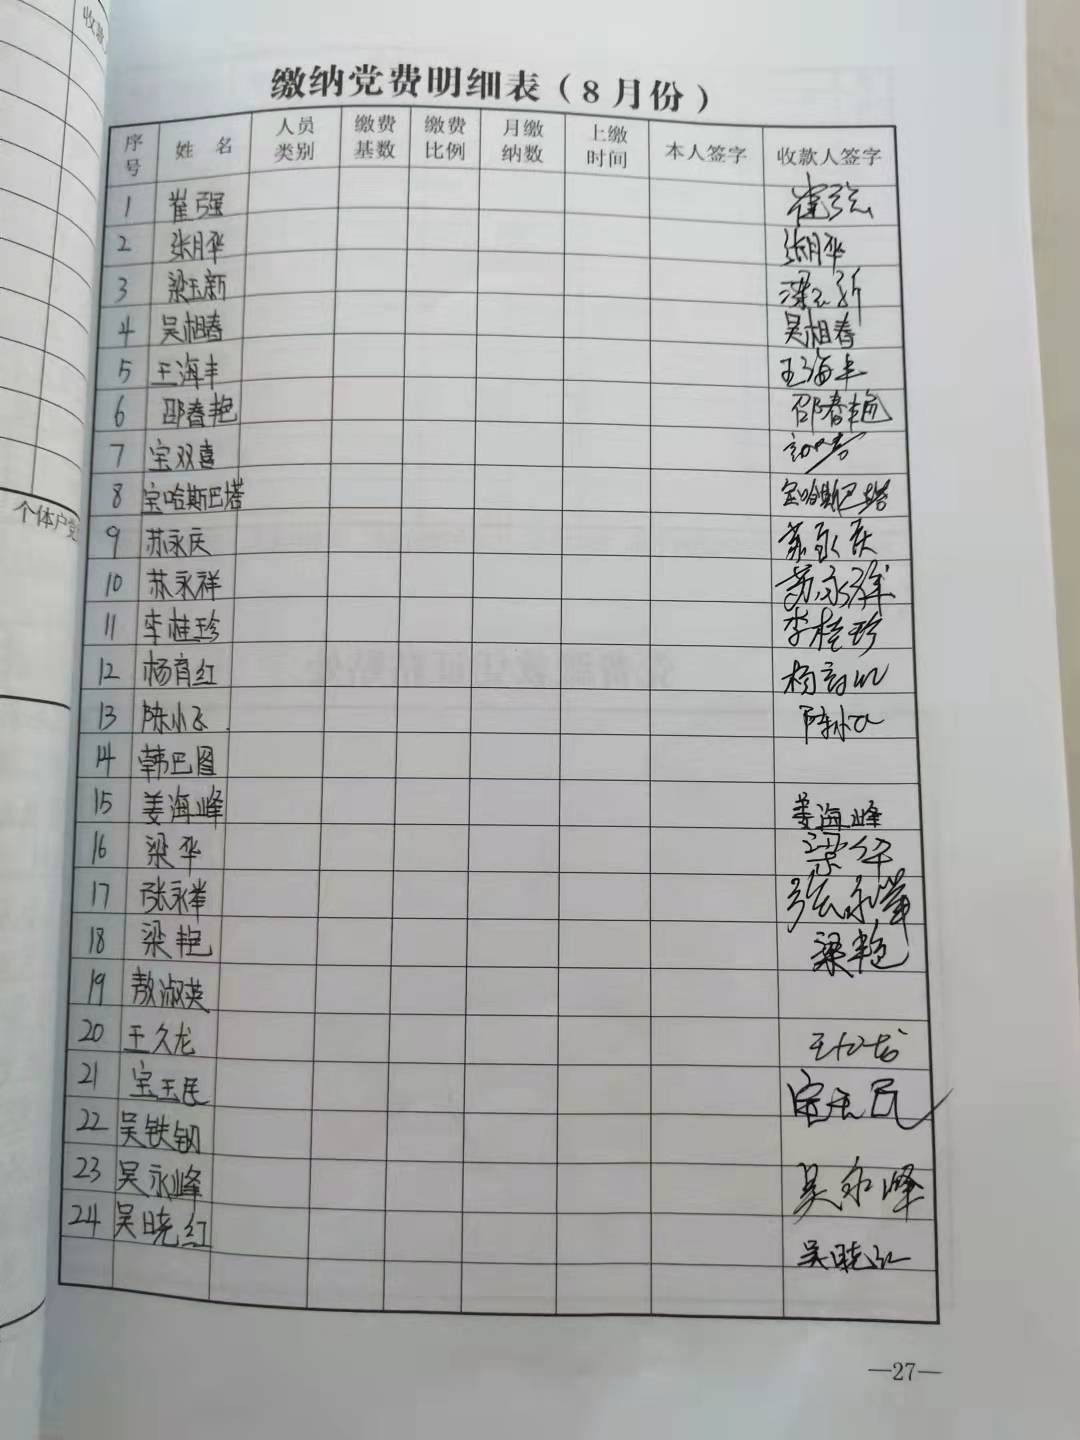 收款
个体户党
缴纳党费明细表（8月份）
序号 姓 名 人员类别 缴费基数 缴费比例 月缴纳数 上缴时间 本人签字 收款人签字
1 崔强 崔强
2 张月华 张月华
3 梁玉新 梁玉新
4 吴相春 吴相春
5 王海丰 王海丰
6 邵春艳 邵春艳
7 宝双喜
8 宝哈斯巴塔 宝哈斯巴塔
9 苏永庆 苏永庆
10 苏永祥 苏永祥
11 李桂珍 李桂珍
12 杨育红 杨育红
13 陈小飞 陈小飞
14 韩巴图
15 姜海峰 姜海峰
16 梁华 梁华
17 张永举 张永举
18 梁艳 梁艳
19 敖淑英
20 王久龙 王久龙
21 宝玉民 宝玉民
22 吴铁钢
23 吴永峰 吴永峰
24 吴晓红 吴晓红
—27—